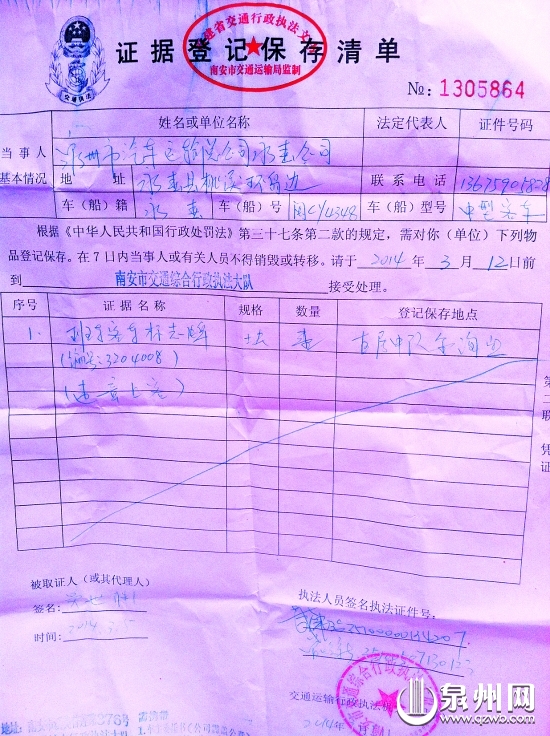 福建省交通行政执法文书
南安市交通运输局监制
证据登记保存清单
交通执法
№: 1305864
姓名或单位名称 法定代表人 证件号码
当事人
基本情况
泉州市汽车运输总公司永春公司
地址 永春县桃溪环岛边 联系电话
车（船）籍 永春 车（船）号 闽CY4348 车（船）型号 中型客车
根据《中华人民共和国行政处罚法》第三十七条第二款的规定，需对你（单位）下列物
品登记保存。在7日内当事人或有关人员不得销毁或转移。请于 2014 年 3 月 12 日前
到 南安市交通综合行政执法大队 接受处理。
序号 证据名称 规格 数量 登记保存地点
1. 班车客车标志牌 壹
(编号:3204008)
第二联
凭证
被取证人（或其代理人）
签名：
时间：2014.3.5
执法人员签名执法证件号：
交通运输行政执法
2014年
地址：
泉州网
www.qzwb.com